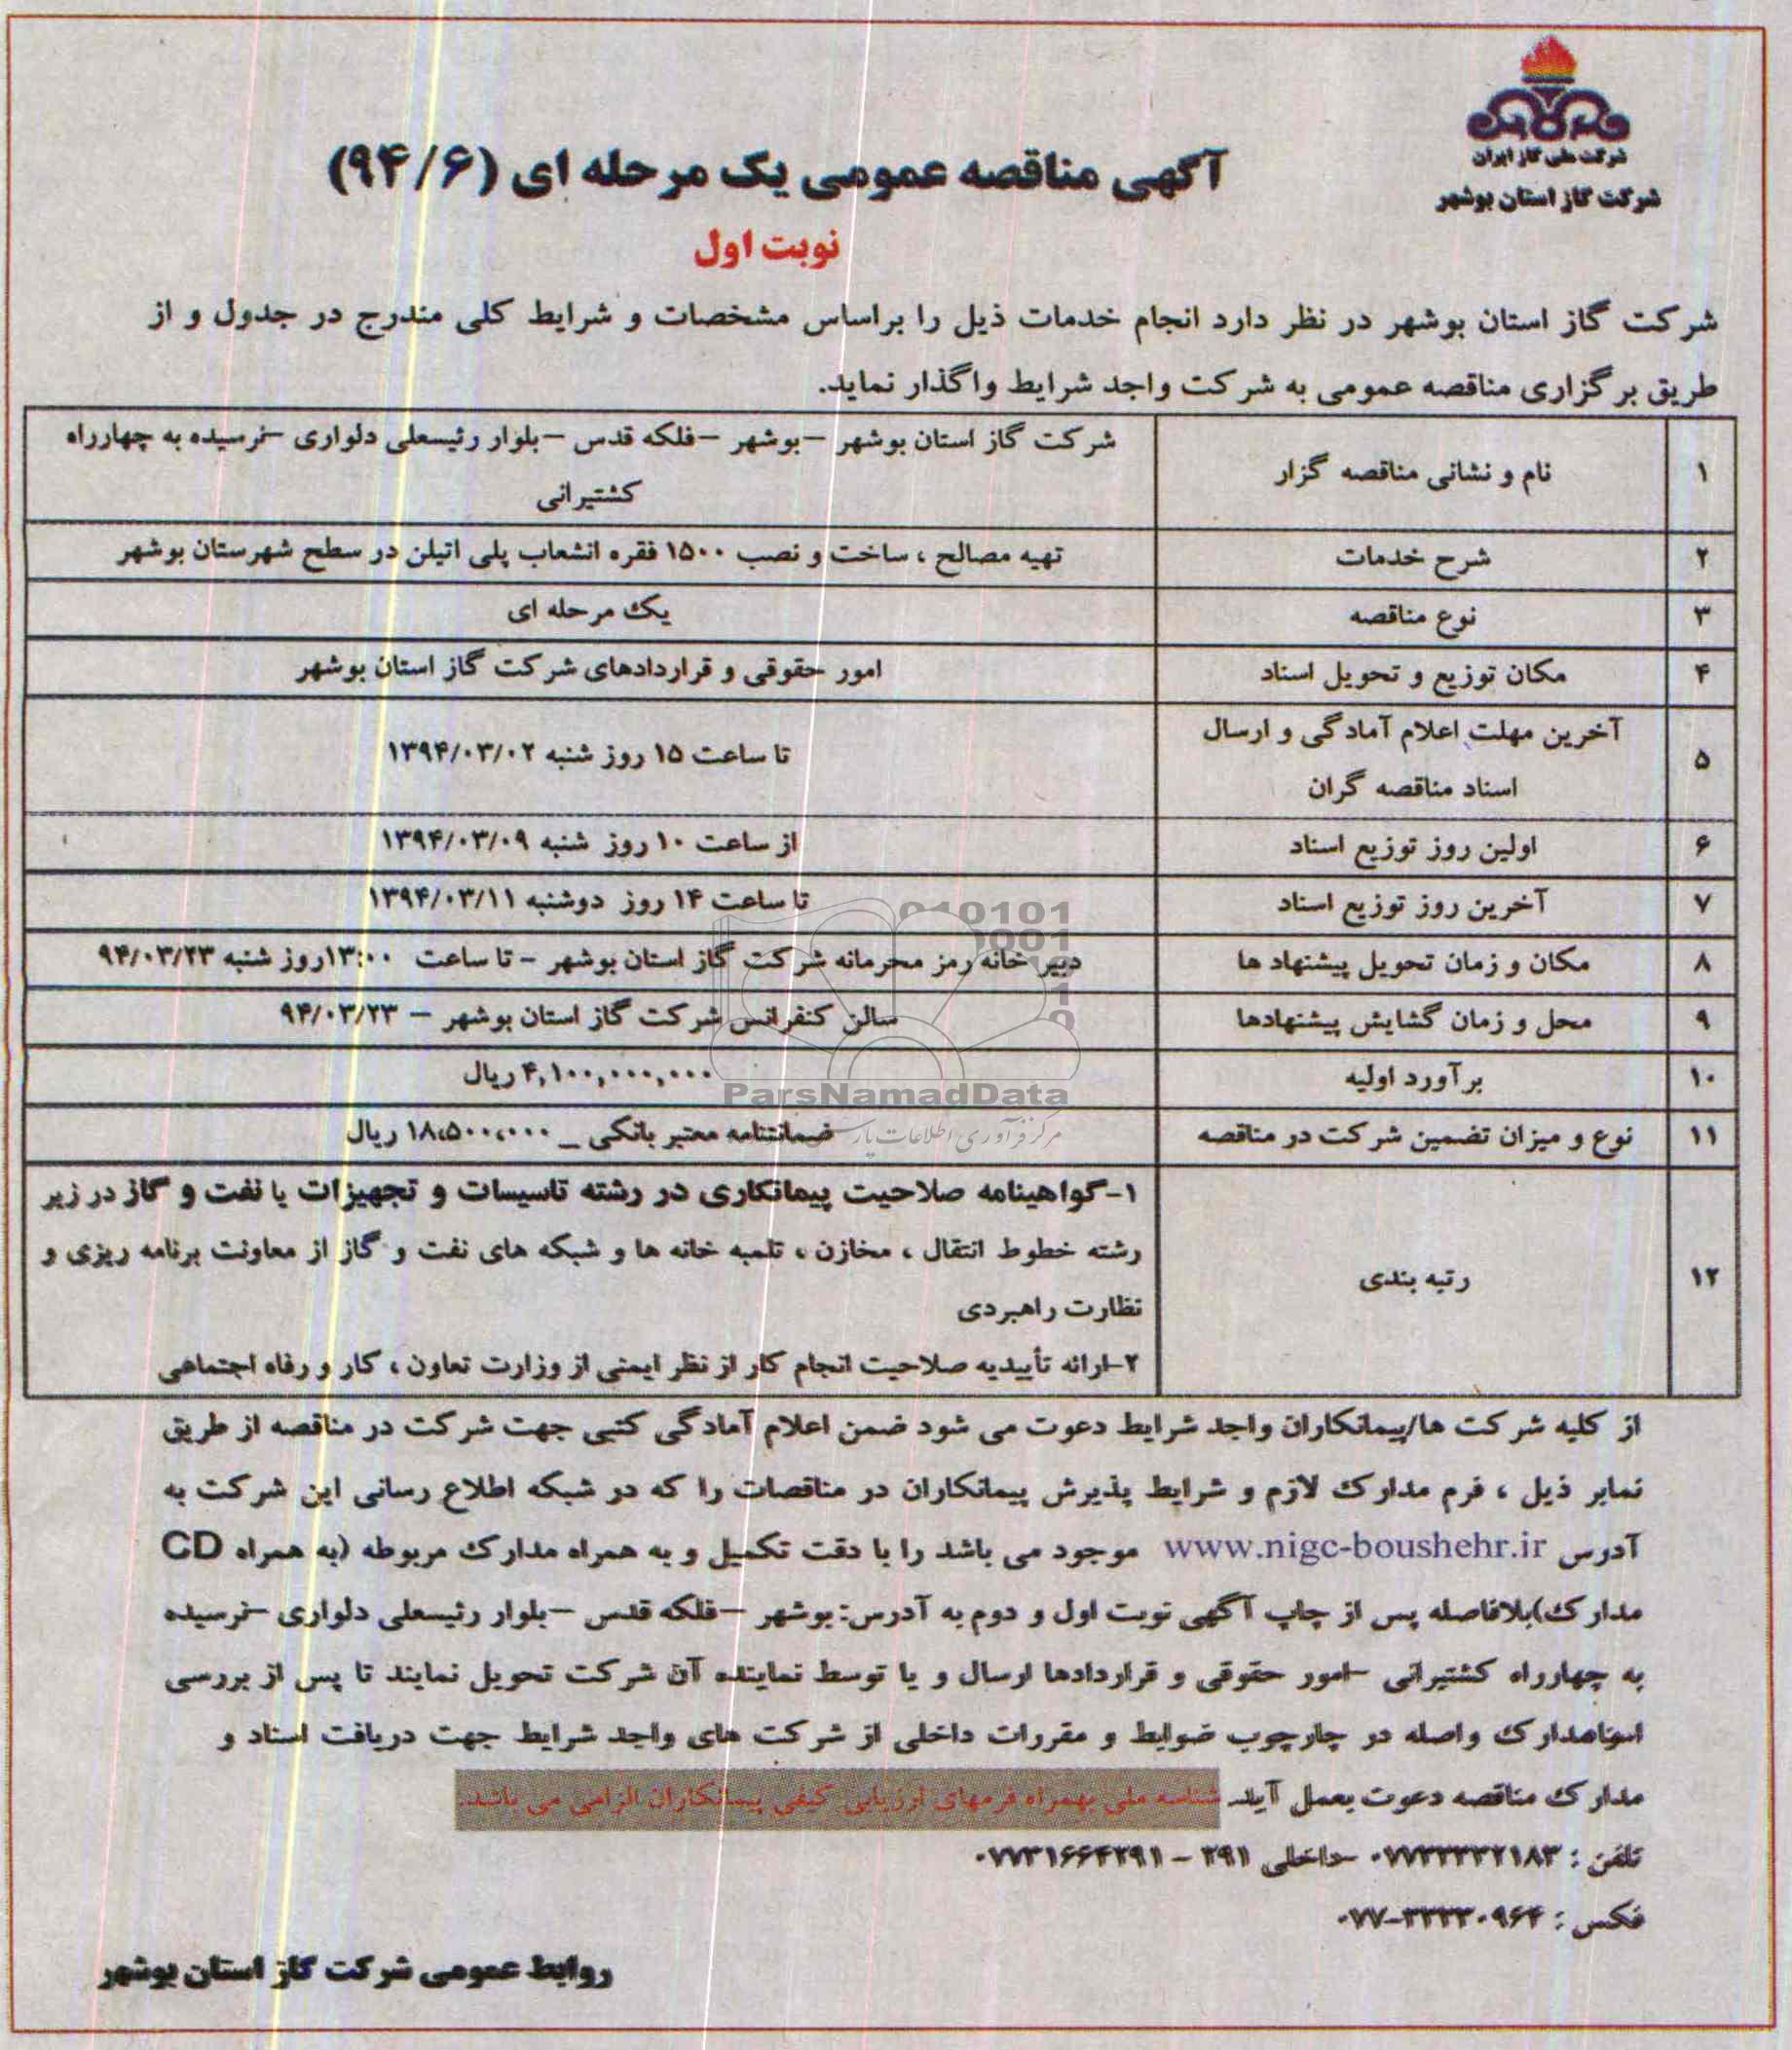 شرکت ملی گاز ایران
شرکت گاز استان بوشهر
آگهی مناقصه عمومی یک مرحله ای (۹۴/۶)
نوبت اول
شرکت گاز استان بوشهر در نظر دارد انجام خدمات ذیل را براساس مشخصات و شرایط کلی مندرج در جدول و از
طریق برگزاری مناقصه عمومی به شرکت واجد شرایط واگذار نماید.
۱ نام و نشانی مناقصه گزار شرکت گاز استان بوشهر –بوشهر –فلکه قدس –بلوار رئیسعلی دلواری –نرسیده به چهارراه
کشتیرانی
۲ شرح خدمات تهیه مصالح ، ساخت و نصب ۱۵۰۰ فقره انشعاب پلی اتیلن در سطح شهرستان بوشهر
۳ نوع مناقصه یک مرحله ای
۴ مکان توزیع و تحویل اسناد امور حقوقی و قراردادهای شرکت گاز استان بوشهر
۵ آخرین مهلت اعلام آمادگی و ارسال
اسناد مناقصه گران تا ساعت ۱۵ روز شنبه ۱۳۹۴/۰۳/۰۲
۶ اولین روز توزیع اسناد از ساعت ۱۰ روز شنبه ۱۳۹۴/۰۳/۰۹
۷ آخرین روز توزیع اسناد تا ساعت ۱۴ روز دوشنبه ۱۳۹۴/۰۳/۱۱
۸ مکان و زمان تحویل پیشنهاد ها دبیر خانه رمز محرمانه شرکت گاز استان بوشهر – تا ساعت ۱۳:۰۰روز شنبه ۹۴/۰۳/۲۳
۹ محل و زمان گشایش پیشنهادها سالن کنفرانس شرکت گاز استان بوشهر – ۹۴/۰۳/۲۳
۱۰ برآورد اولیه ۴,۱۰۰,۰۰۰,۰۰۰ ریال
ParsNamadData
مرکز فرآوری اطلاعات پارس
۱۱ نوع و میزان تضمین شرکت در مناقصه ضمانتنامه معتبر بانکی _ ۱۸،۵۰۰،۰۰۰ ریال
۱۲ رتبه بندی ۱-گواهینامه صلاحیت پیمانکاری در رشته تاسیسات و تجهیزات یا نفت و گاز در زیر
رشته خطوط انتقال ، مخازن ، تلمبه خانه ها و شبکه های نفت و گاز از معاونت برنامه ریزی و
نظارت راهبردی
۲-ارائه تأییدیه صلاحیت انجام کار از نظر ایمنی از وزارت تعاون ، کار و رفاه اجتماعی
از کلیه شرکت ها/پیمانکاران واجد شرایط دعوت می شود ضمن اعلام آمادگی کتبی جهت شرکت در مناقصه از طریق
نمابر ذیل ، فرم مدارک لازم و شرایط پذیرش پیمانکاران در مناقصات را که در شبکه اطلاع رسانی این شرکت به
آدرس www.nigc-boushehr.ir موجود می باشد را با دقت تکمیل و به همراه مدارک مربوطه (به همراه CD
مدارک)بلافاصله پس از چاپ آگهی نوبت اول و دوم به آدرس: بوشهر –فلکه قدس –بلوار رئیسعلی دلواری –نرسیده
به چهارراه کشتیرانی –امور حقوقی و قراردادها ارسال و یا توسط نماینده آن شرکت تحویل نمایند تا پس از بررسی
واصله در چارچوب ضوابط و مقررات داخلی از شرکت های واجد شرایط جهت دریافت اسناد و
مدارک مناقصه دعوت بعمل آید. شناسه ملی بهمراه فرمهای ارزیابی کیفی پیمانکاران الزامی می باشد.
تلفن : ۰۷۷۳۳۳۳۲۱۸۳ –داخلی ۲۹۱ – ۰۷۷۳۱۶۶۴۲۹۱
فکس : ۰۷۷-۳۳۳۳۰۹۶۴
روابط عمومی شرکت گاز استان بوشهر